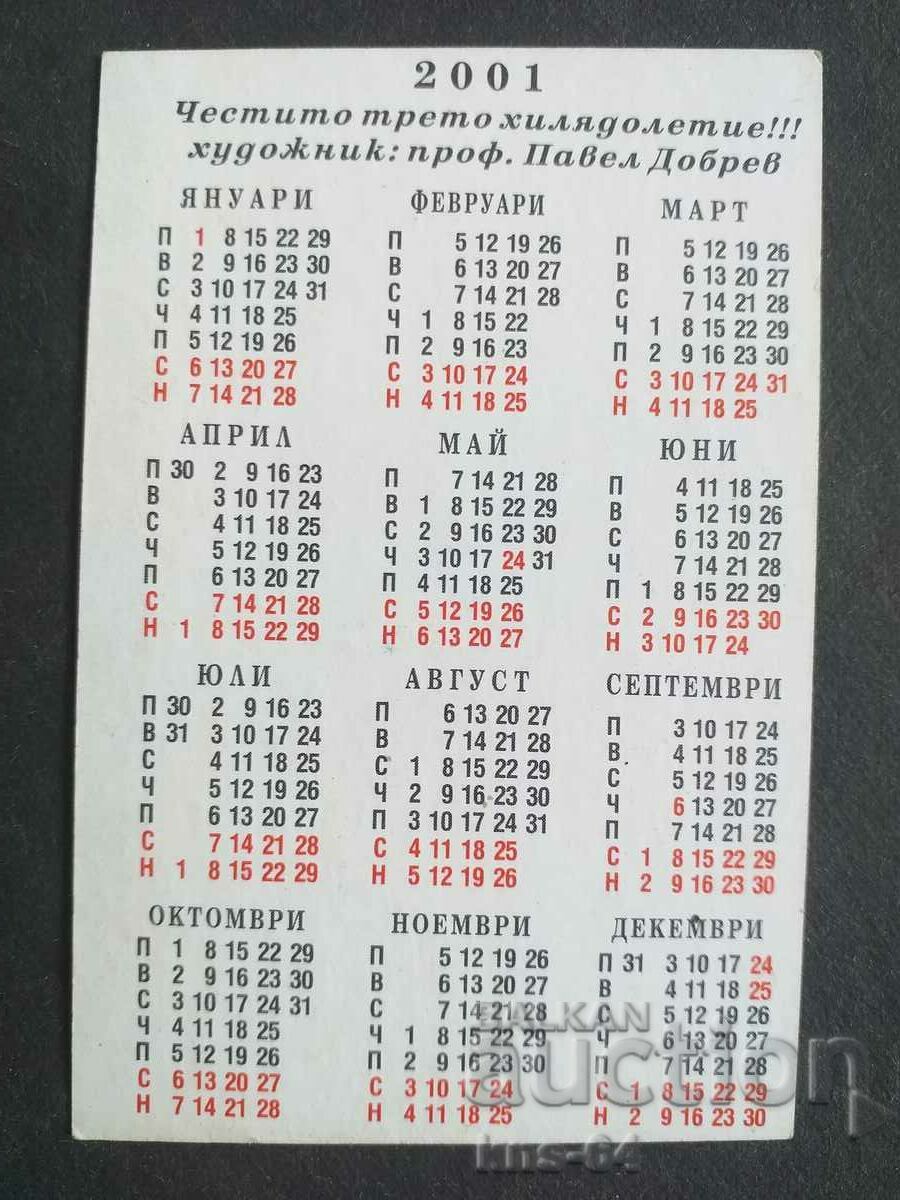 2001
Честито трето хилядолетие!!!
художник: проф. Павел Добрев
ЯНУАРИ
П 1 8 15 22 29
В 2 9 16 23 30
С 3 10 17 24 31
Ч 4 11 18 25
П 5 12 19 26
С 6 13 20 27
Н 7 14 21 28
ФЕВРУАРИ
П 5 12 19 26
В 6 13 20 27
С 7 14 21 28
Ч 1 8 15 22
П 2 9 16 23
С 3 10 17 24
Н 4 11 18 25
МАРТ
П 5 12 19 26
В 6 13 20 27
С 7 14 21 28
Ч 1 8 15 22 29
П 2 9 16 23 30
С 3 10 17 24 31
Н 4 11 18 25
АПРИЛ
П 30 2 9 16 23
В 3 10 17 24
С 4 11 18 25
Ч 5 12 19 26
П 6 13 20 27
С 7 14 21 28
Н 1 8 15 22 29
МАЙ
П 7 14 21 28
В 1 8 15 22 29
С 2 9 16 23 30
Ч 3 10 17 24 31
П 4 11 18 25
С 5 12 19 26
Н 6 13 20 27
ЮНИ
П 4 11 18 25
В 5 12 19 26
С 6 13 20 27
Ч 7 14 21 28
П 1 8 15 22 29
С 2 9 16 23 30
Н 3 10 17 24
ЮЛИ
П 30 2 9 16 23
В 31 3 10 17 24
С 4 11 18 25
Ч 5 12 19 26
П 6 13 20 27
С 7 14 21 28
Н 1 8 15 22 29
АВГУСТ
П 6 13 20 27
В 7 14 21 28
С 1 8 15 22 29
Ч 2 9 16 23 30
П 3 10 17 24 31
С 4 11 18 25
Н 5 12 19 26
СЕПТЕМВРИ
П 3 10 17 24
В 4 11 18 25
С 5 12 19 26
Ч 6 13 20 27
П 7 14 21 28
С 1 8 15 22 29
Н 2 9 16 23 30
ОКТОМВРИ
П 1 8 15 22 29
В 2 9 16 23 30
С 3 10 17 24 31
Ч 4 11 18 25
П 5 12 19 26
С 6 13 20 27
Н 7 14 21 28
НОЕМВРИ
П 5 12 19 26
В 6 13 20 27
С 7 14 21 28
Ч 1 8 15 22 29
П 2 9 16 23 30
С 3 10 17 24
Н 4 11 18 25
ДЕКЕМВРИ
П 31 3 10 17 24
В 4 11 18 25
С 5 12 19 26
Ч 6 13 20 27
П 7 14 21 28
С 1 8 15 22 29
Н 2 9 16 23 30
BALKAN
auction
kns-64